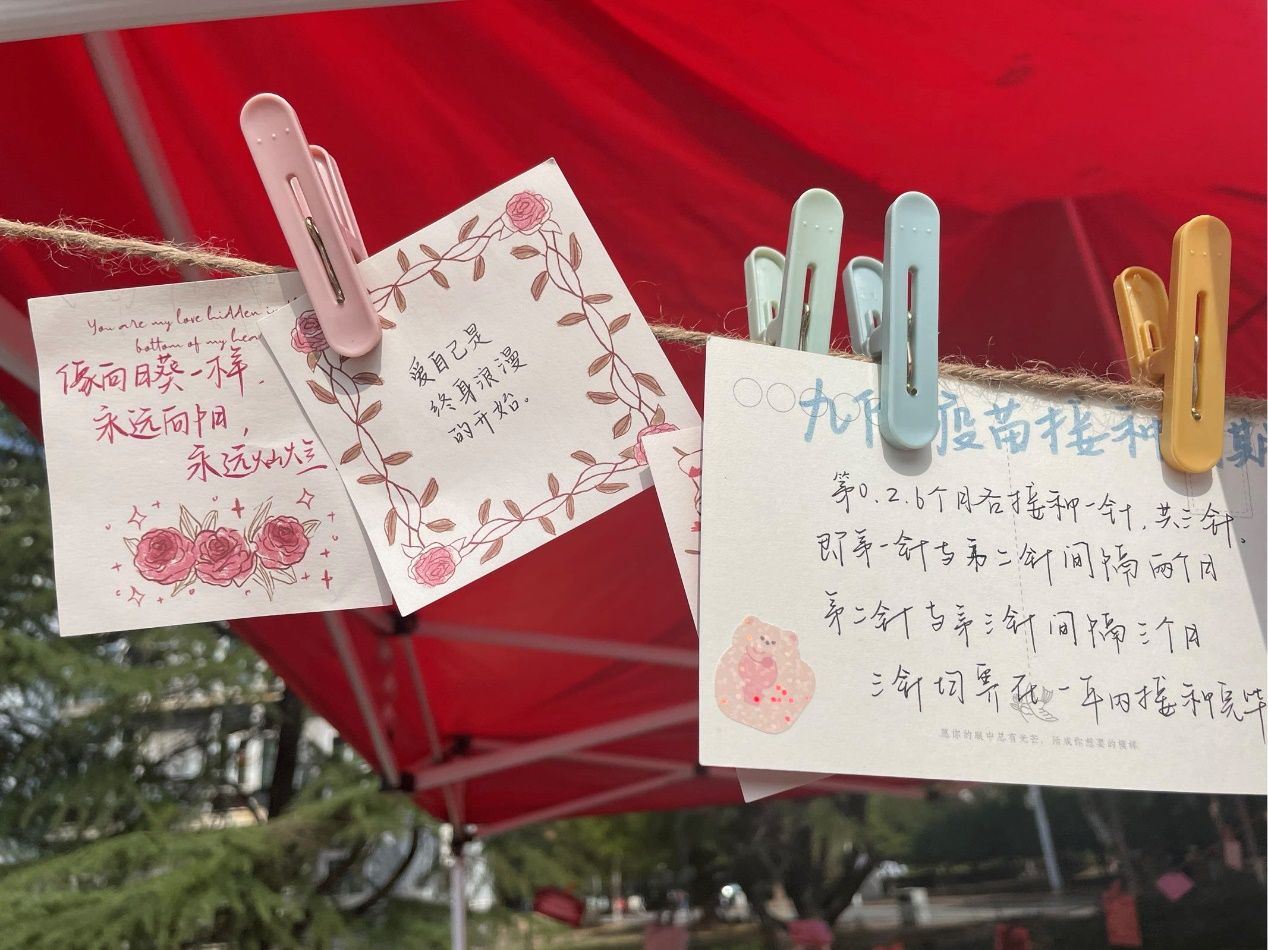 You are my love hidden
bottom of my
像向日葵一样.
永远向阳,
永远灿烂
爱自己是
终身浪漫
的开始。
九 疫苗接种 期
第0.2.6个月各接种一针,共三针.
即第一针与第二针间隔两个月
第二针与第三针间隔三个月
三针均要在一年内接种完毕
愿你的眼中总有光芒,活成你想要的模样